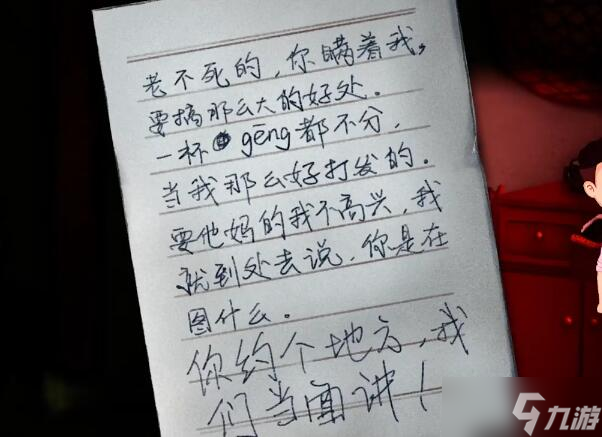 老不死的，你瞒着我，
要搞那么大的好处．
一杯 gēng都不分，
当我那么好打发的．
要他妈的我不高兴，我
就到处去说，你是在
图什么。
你约个地方，我
们当面讲！
九游